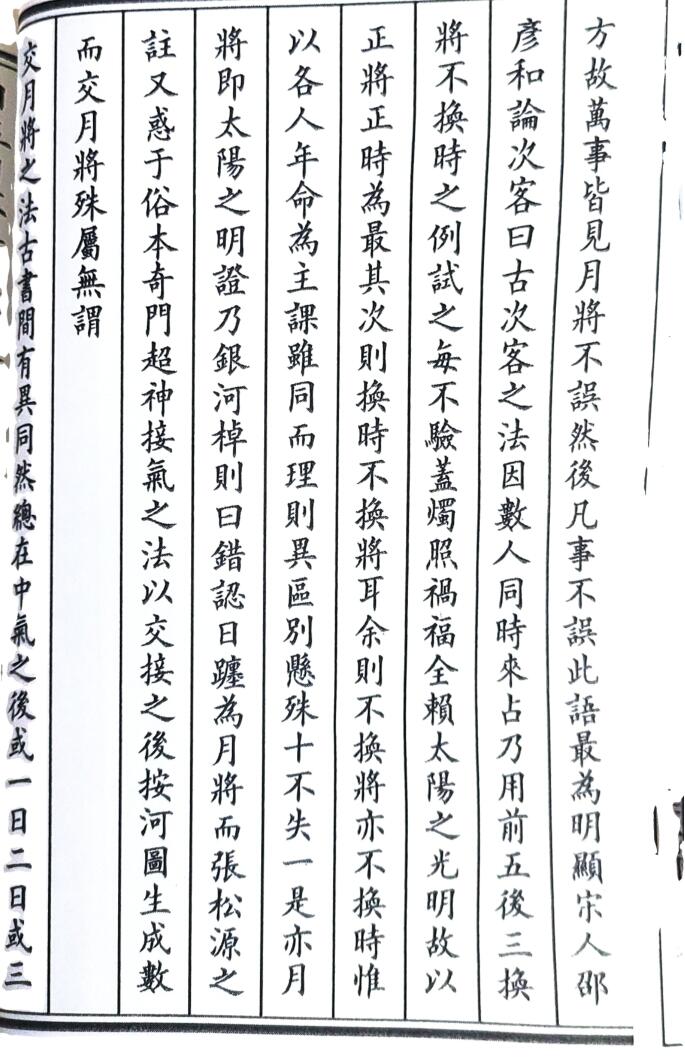 方故萬事皆見月將不誤然後凡事不誤此語最為明顯宋人邵
彥和論次客曰古次客之法因數人同時來占乃用前五後三換
將不換時之例試之每不驗蓋燭照禍福全賴太陽之光明故以
正將正時為最其次則換時不換將耳余則不換將亦不換時惟
以各人年命為主課雖同而理則異區別懸殊十不失一是亦月
將即太陽之明證乃銀河棹則曰錯認日躔為月將而張松源之
註又惑于俗本奇門超神接氣之法以交接之後按河圖生成數
而交月將殊屬無謂
交月將之法古書間有異同然總在中氣之後或一日二日或三